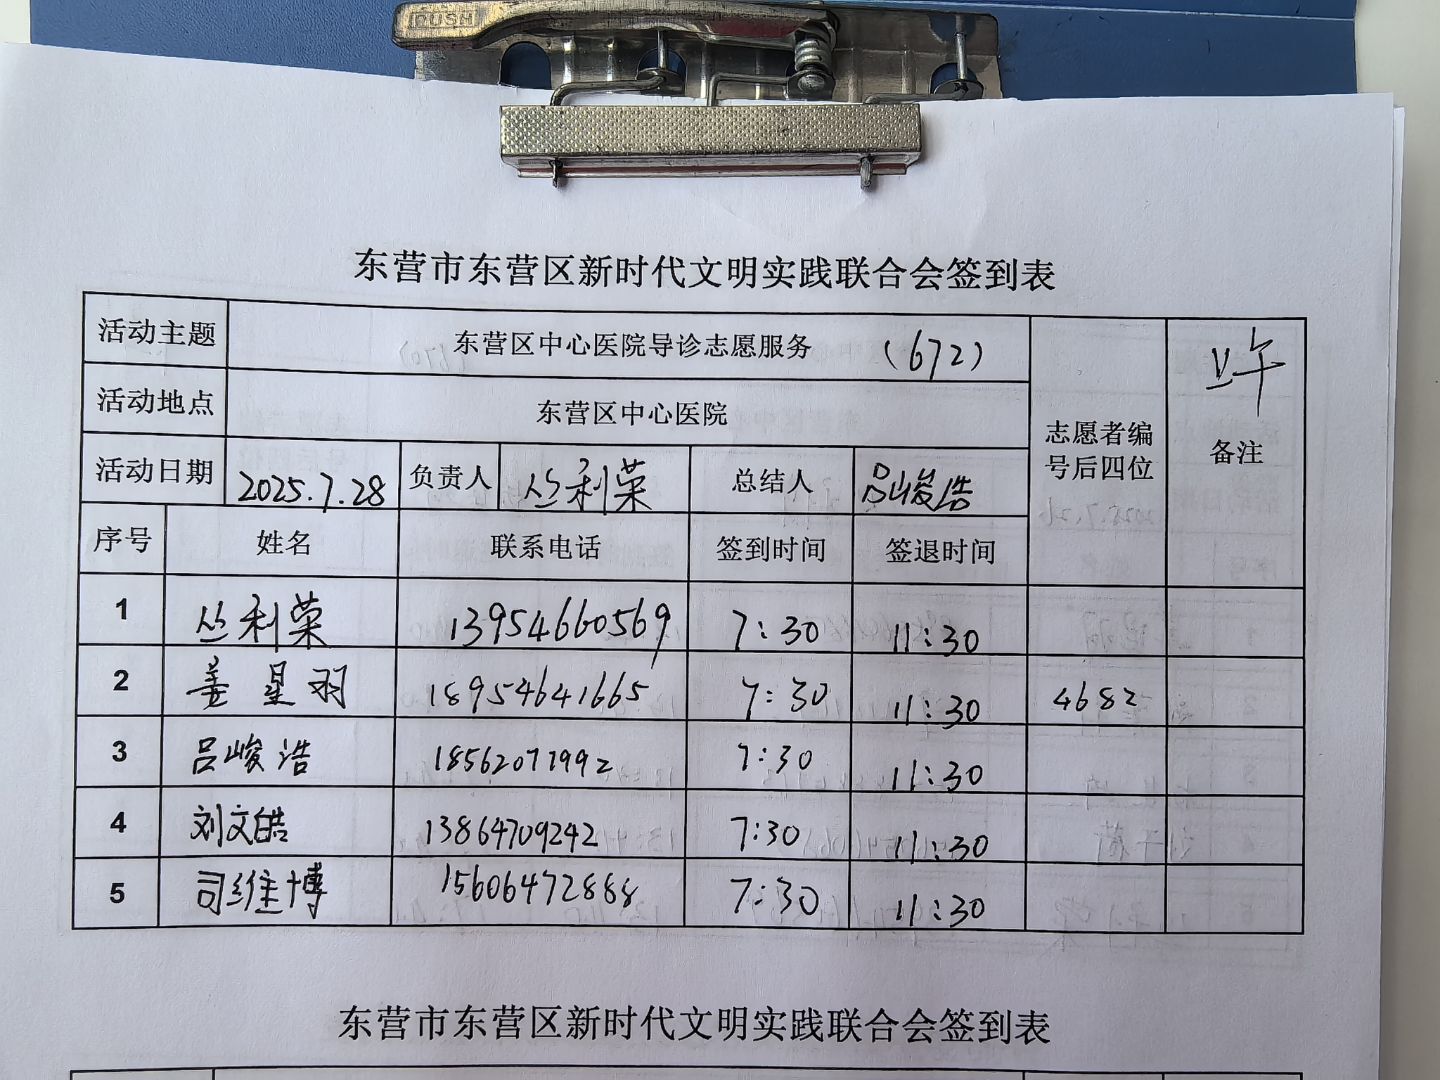 PUSH
东营市东营区新时代文明实践联合会签到表
活动主题 东营区中心医院导诊志愿服务 (672) 志愿者编号后四位 上午 备注
活动地点 东营区中心医院
活动日期 2025.7.28 负责人 丛利荣 总结人 吕峻浩
序号 姓名 联系电话 签到时间 签退时间
1 丛利荣 13954660569 7:30 11:30
2 姜星羽 18954641665 7:30 11:30 4682
3 吕峻浩 18562071992 7:30 11:30
4 刘文皓 13864709242 7:30 11:30
5 司维博 15606472888 7:30 11:30
东营市东营区新时代文明实践联合会签到表